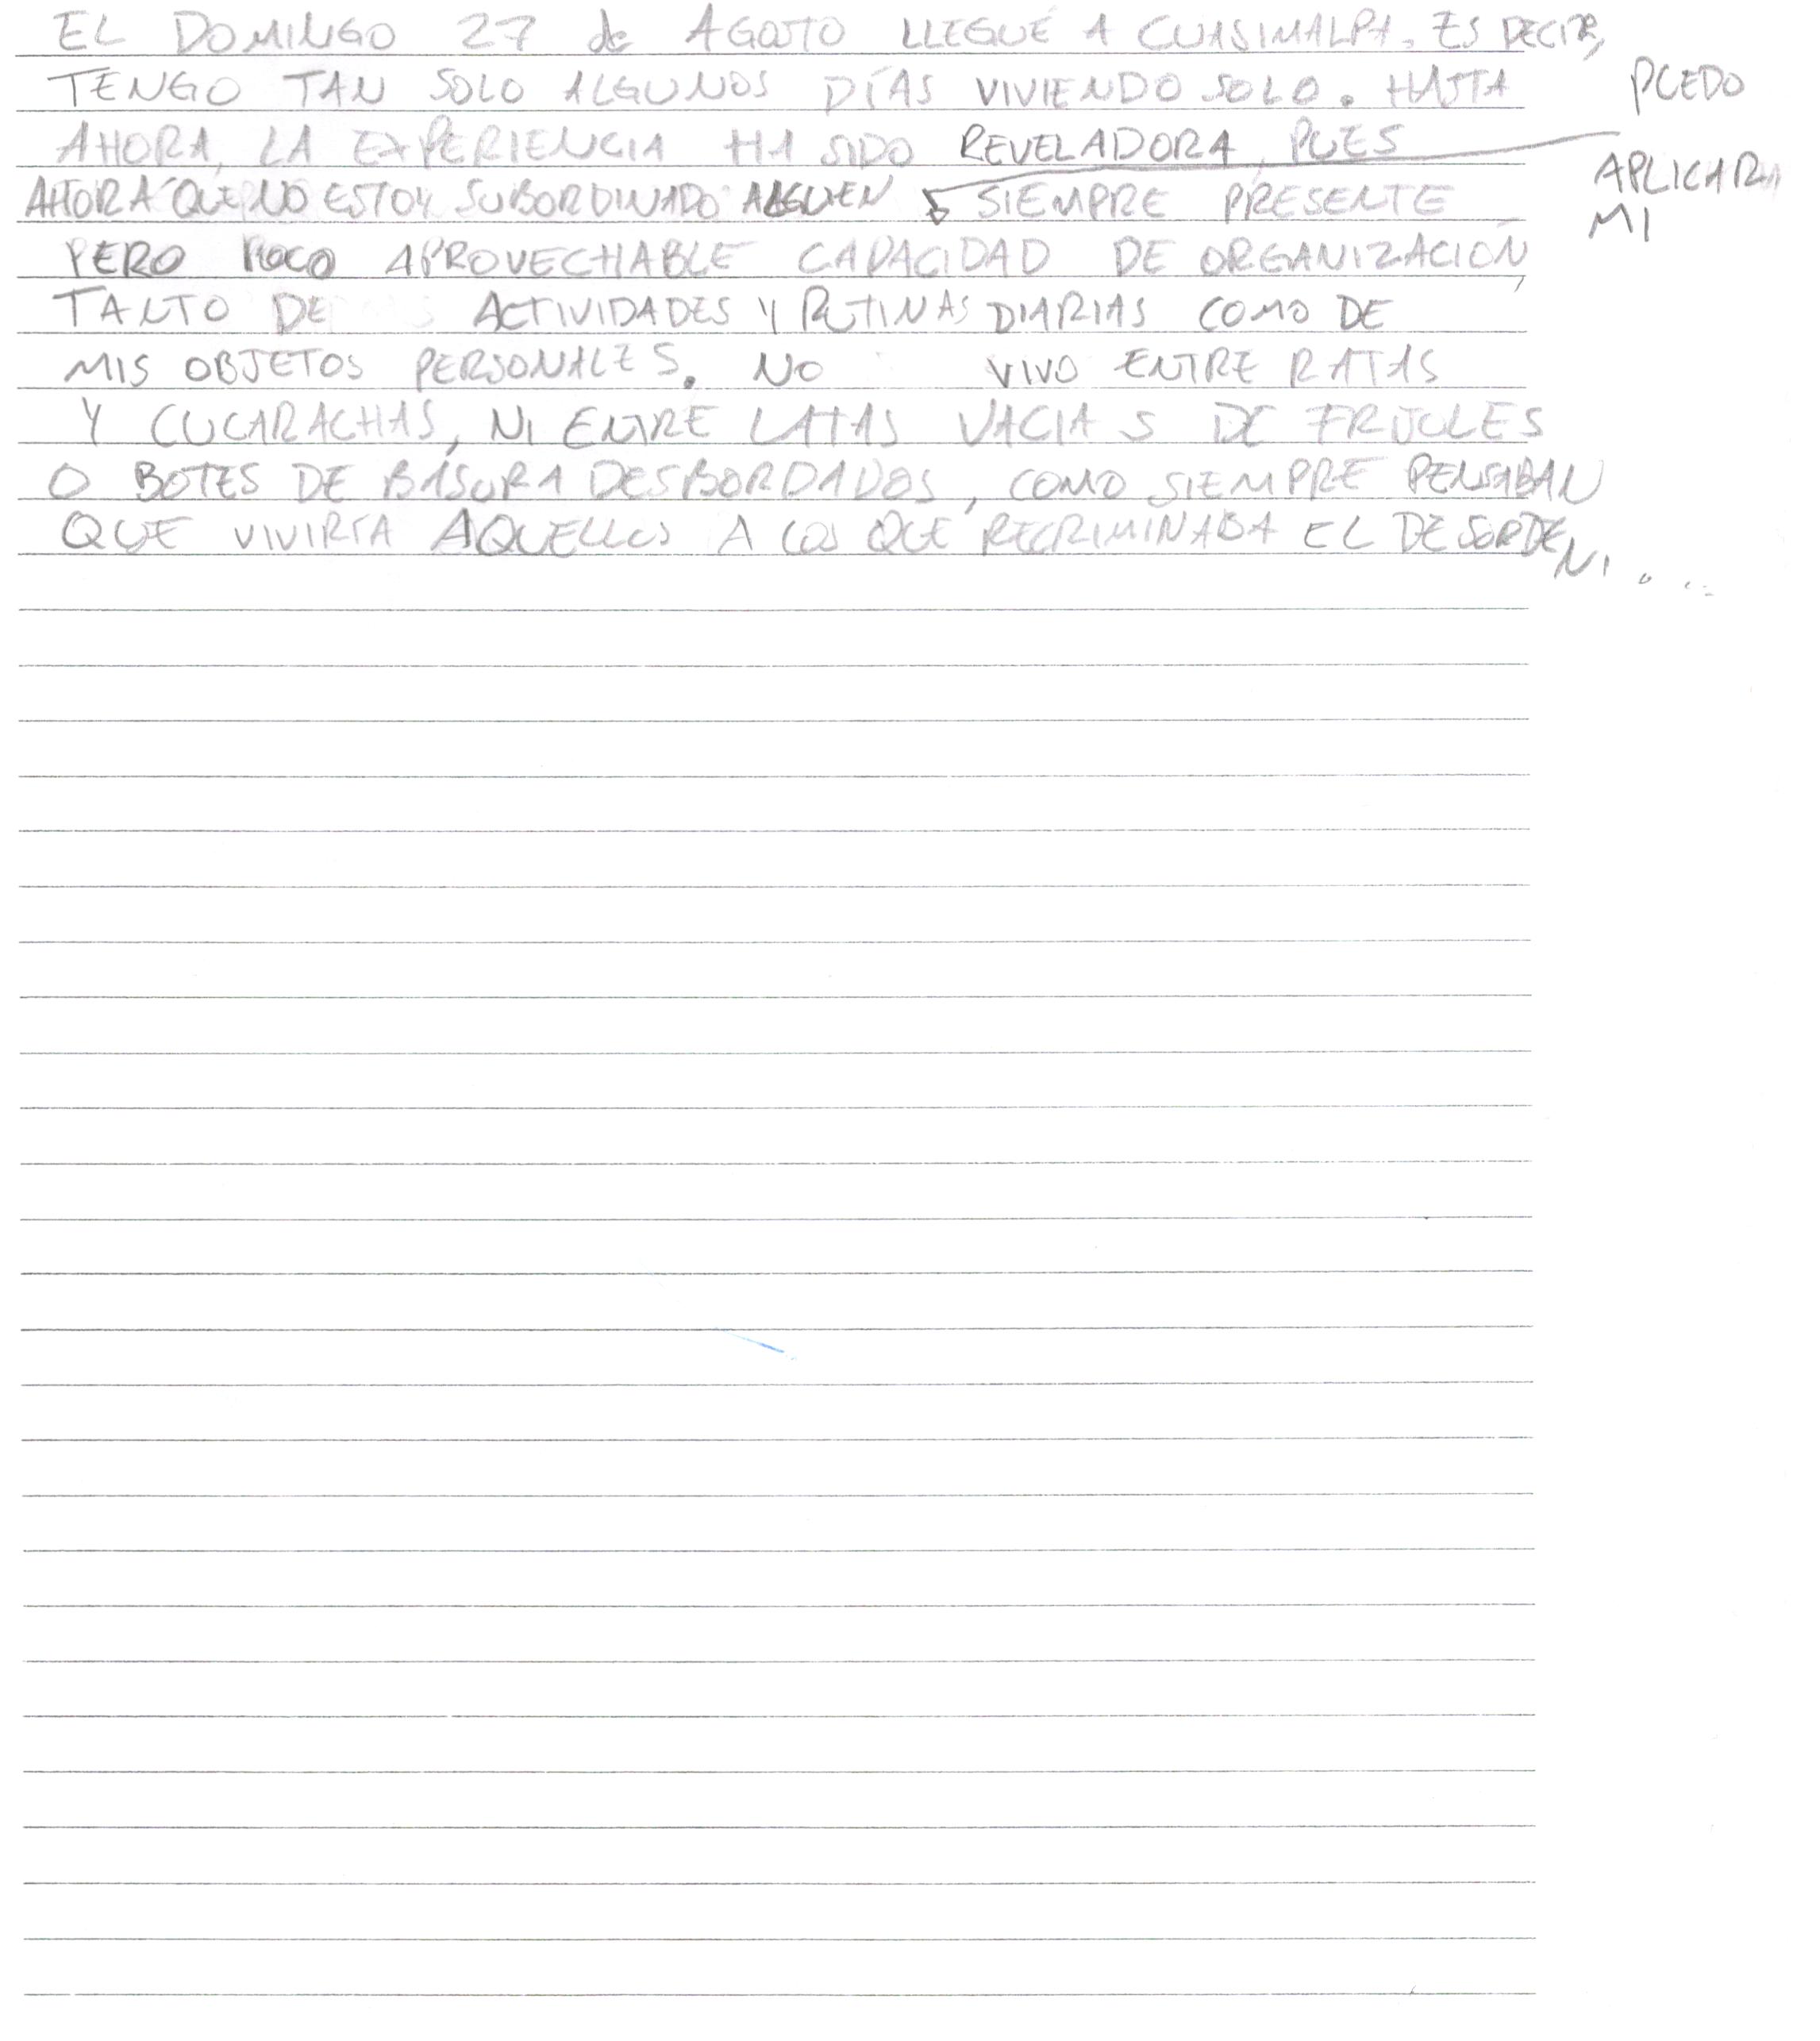 EL DOMINGO 27 de AGOSTO LLEGUÉ A CUASIMALPA. ES DECIR,
TENGO TAN SOLO ALGUNOS DÍAS VIVIENDO SOLO. HASTA
AHORA, LA EXPERIENCIA HA SIDO REVELADORA, PUES
AHORA QUE NO ESTOY SUBORDINADO ALGUIEN SIEMPRE PRESENTE
PUEDO
APLICAR
MI
PERO POCO APROVECHABLE CAPACIDAD DE ORGANIZACIÓN,
TANTO DE ACTIVIDADES Y RUTINAS DIARIAS COMO DE
MIS OBJETOS PERSONALES. NO VIVO ENTRE RATAS
Y CUCARACHAS, NI ENTRE LATAS VACIAS DE FRIJOLES
O BOTES DE BASURA DESBORDADOS, COMO SIEMPRE PENSABAN
QUE VIVIRÍA AQUELLOS A LOS QUE RECRIMINABA EL DESORDEN. ...